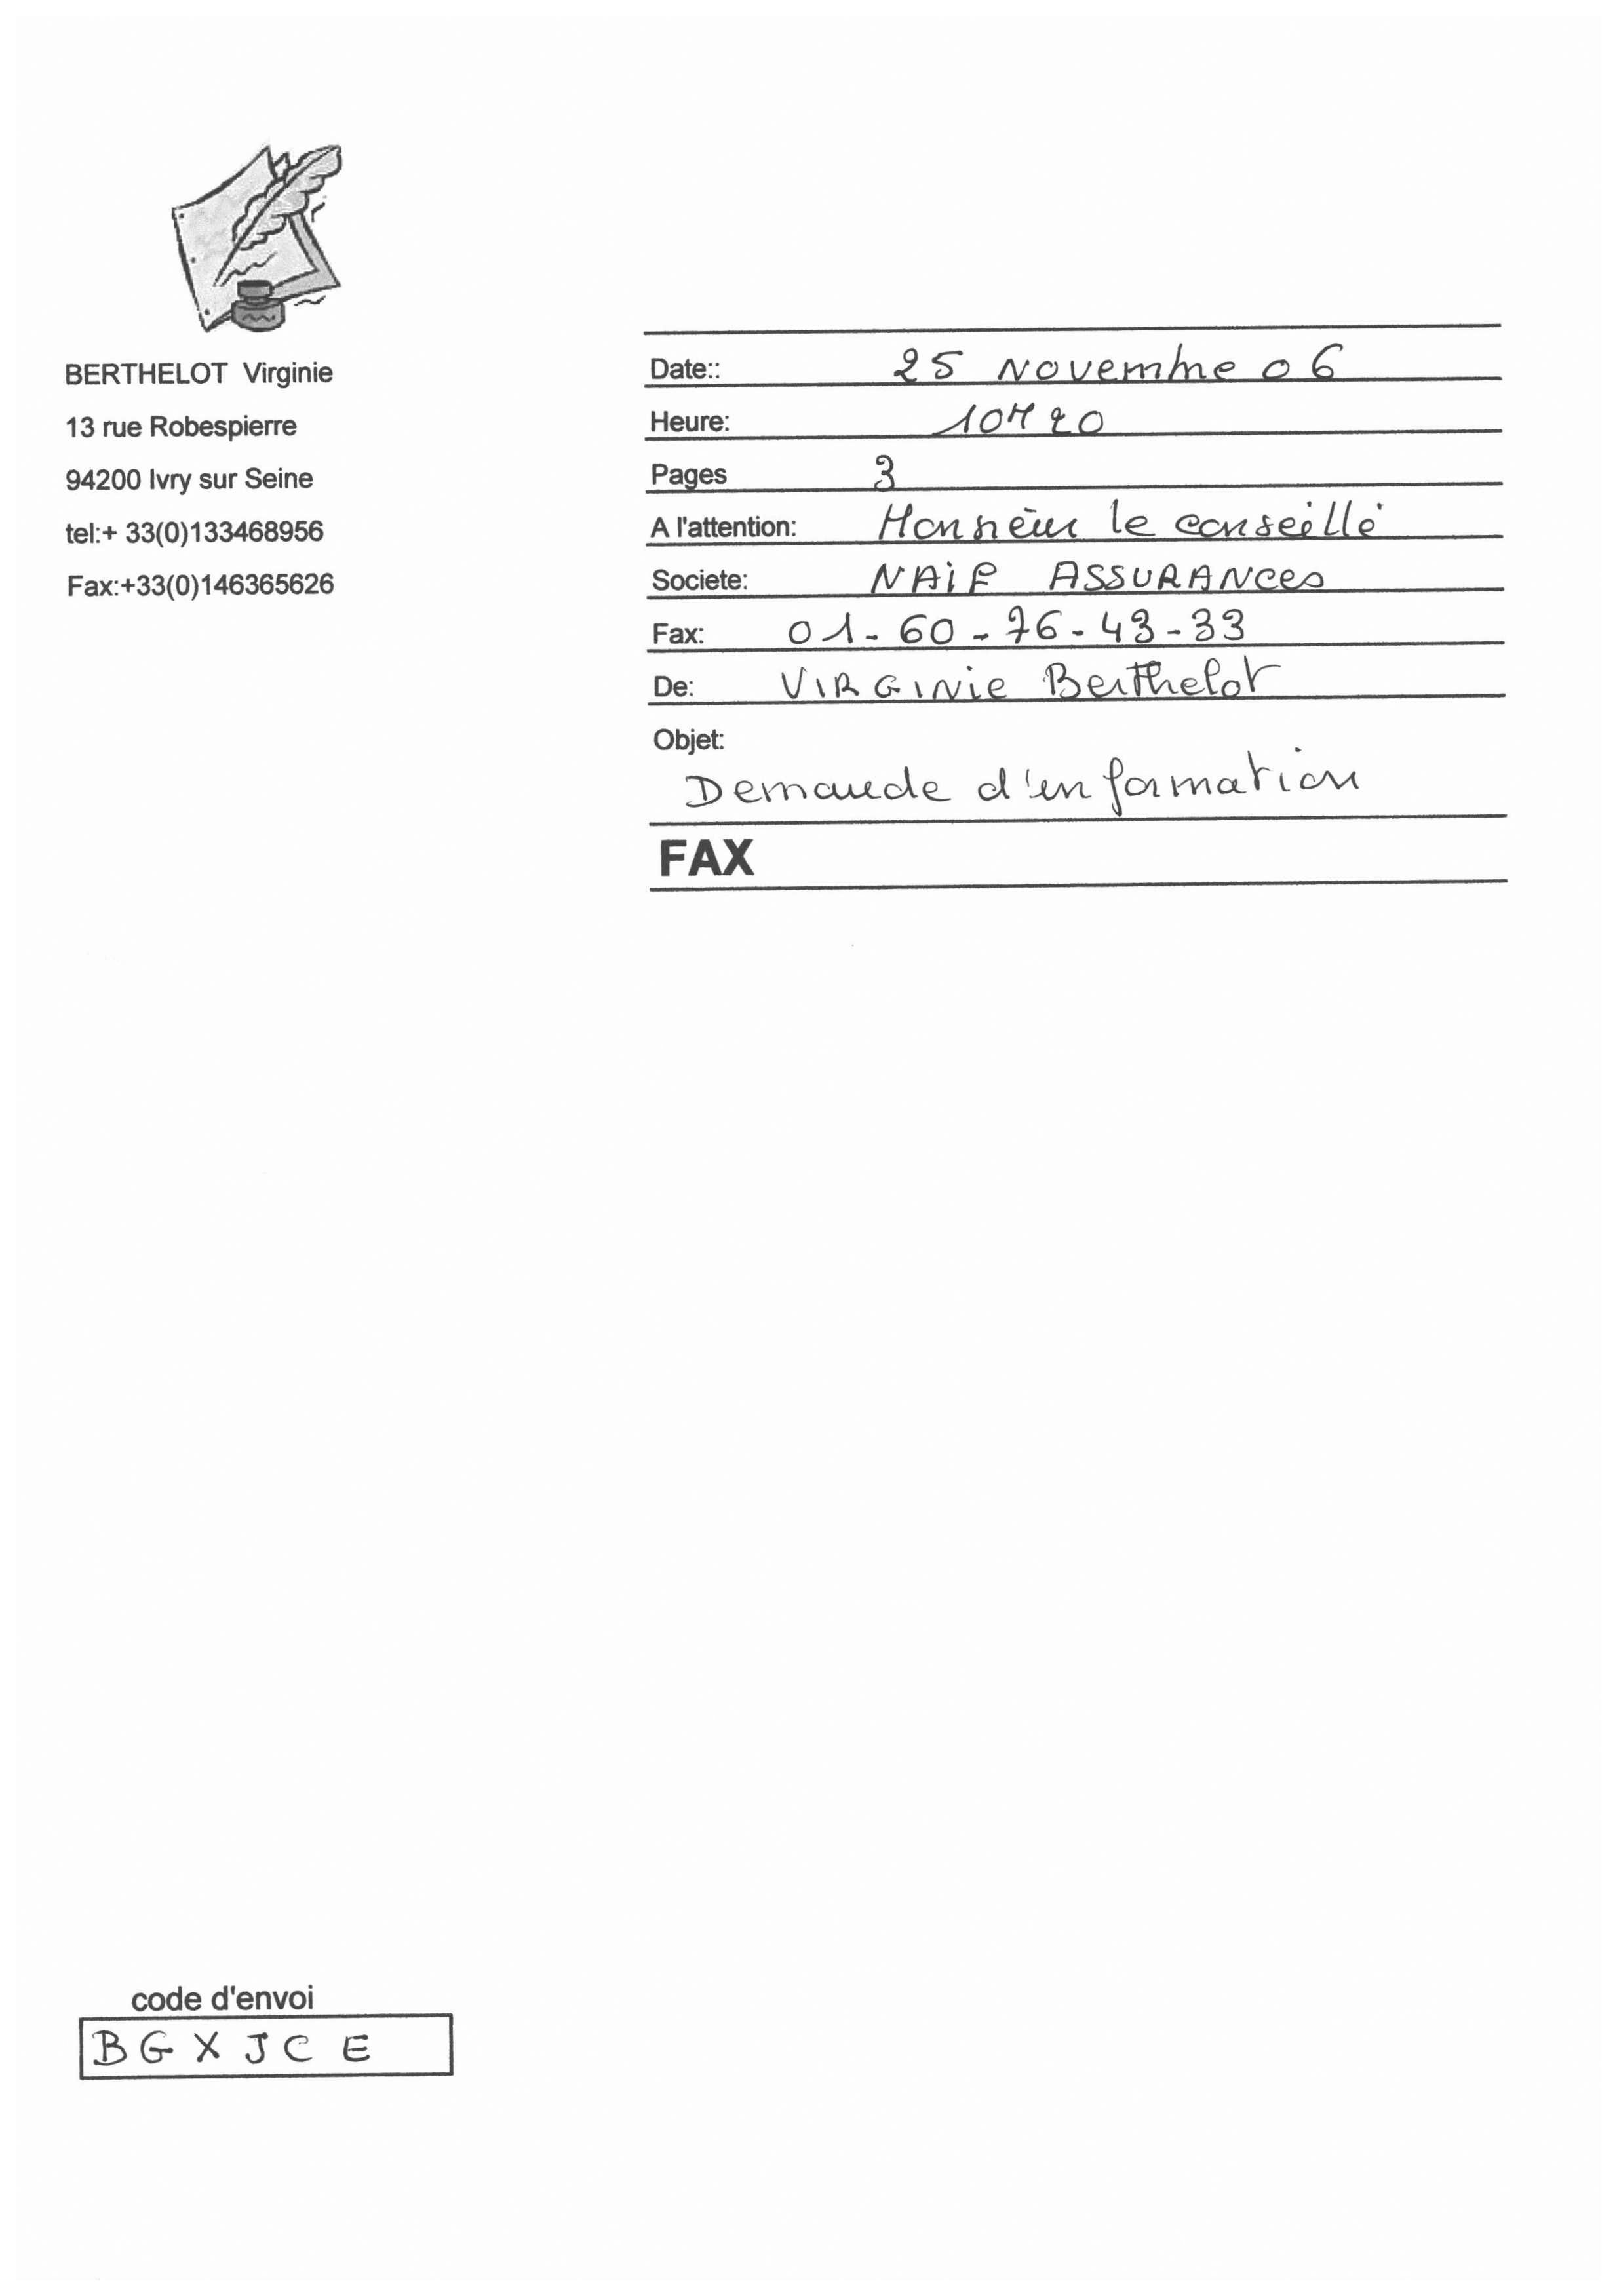 BERTHELOT Virginie
13 rue Robespierre
94200 Ivry sur Seine
tel:+ 33(0)133468956
Fax:+33(0)146365626
Date:: 25 Novembre 06
Heure: 10H20
Pages 3
A l'attention: Monsieur le conseillé
Societe: NAIF ASSURANCes
Fax: 01-60-76-43-33
De: VIRGINie Berthelot
Objet:
Demande d'information
FAX
code d'envoi
BGXJCE